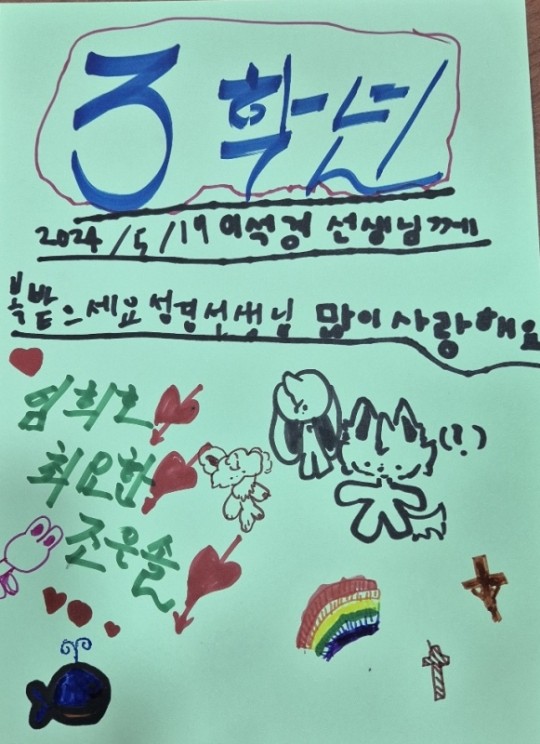 3 학년
2024/5/19 이석경 선생님께
복받으세요 성경선생님 많이 사랑해요
임희호
최요한
조은솔
(?)